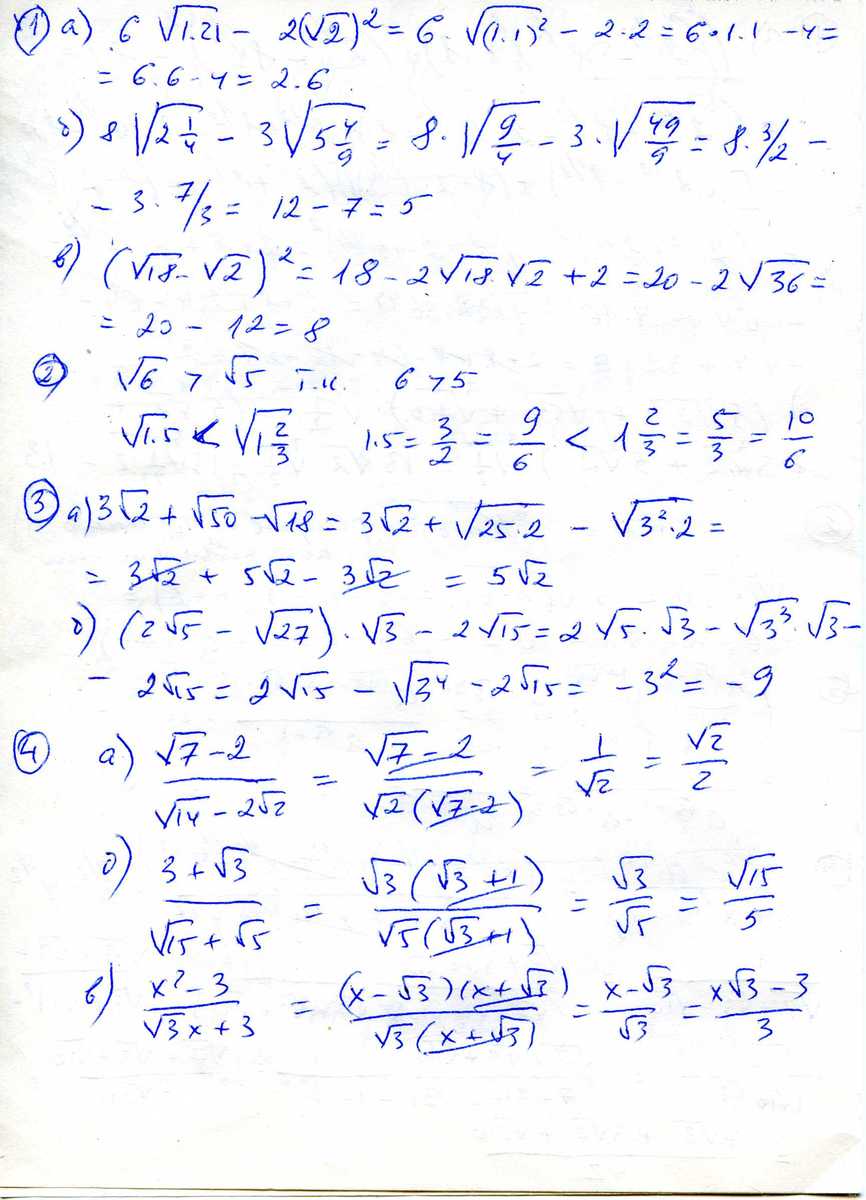 1 а) 6 √1.21 - 2(√2)² = 6 · √(1.1)² - 2·2 = 6·1.1 - 4 =
= 6.6 - 4 = 2.6
б) 8 √2 1/4 - 3 √5 4/9 = 8 · √9/4 - 3 · √49/9 = 8 · 3/2 -
- 3 · 7/3 = 12 - 7 = 5
в) (√18 - √2)² = 18 - 2√18 √2 + 2 = 20 - 2√36 =
= 20 - 12 = 8
2 √6 > √5 т.к. 6 > 5
√1.5 < √1 2/3 1.5 = 3/2 = 9/6 < 1 2/3 = 5/3 = 10/6
3 а) 3√2 + √50 - √18 = 3√2 + √25·2 - √3²·2 =
= 3√2 + 5√2 - 3√2 = 5√2
б) (2√5 - √27) · √3 - 2√15 = 2√5 · √3 - √3³ · √3 -
- 2√15 = 2√15 - √3⁴ - 2√15 = -3² = -9
4 а) √7-2 / √14-2√2 = √7-2 / √2(√7-2) = 1/√2 = √2/2
б) 3+√3 / √15+√5 = √3(√3+1) / √5(√3+1) = √3/√5 = √15/5
в) x²-3 / √3x+3 = (x-√3)(x+√3) / √3(x+√3) = x-√3 / √3 = x√3-3 / 3